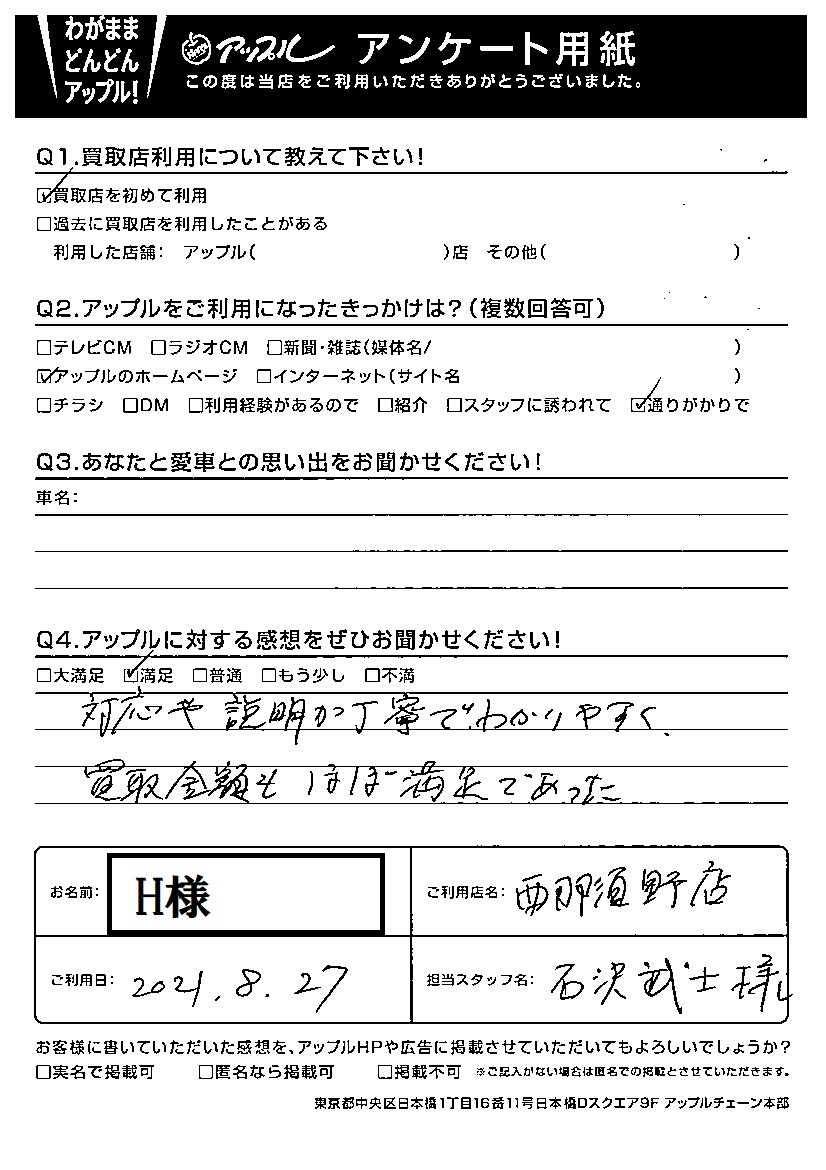 わがまま
どんどん
アップル!
アップル アンケート用紙
この度は当店をご利用いただきありがとうございました。
Q1.買取店利用について教えて下さい!
☑買取店を初めて利用
□過去に買取店を利用したことがある
利用した店舗: アップル( )店 その他( )
Q2.アップルをご利用になったきっかけは?(複数回答可)
□テレビCM □ラジオCM □新聞・雑誌(媒体名/ )
☑アップルのホームページ □インターネット(サイト名 )
□チラシ □DM □利用経験があるので □紹介 □スタッフに誘われて ☑通りがかりで
Q3.あなたと愛車との思い出をお聞かせください!
車名:
Q4.アップルに対する感想をぜひお聞かせください!
□大満足 ☑満足 □普通 □もう少し □不満
対応や説明が丁寧でわかりやすく、
買取金額もほぼ満足であった
お名前: H様
ご利用店名: 西那須野店
ご利用日: 2021.8.27
担当スタッフ名: 石沢武士様
お客様に書いていただいた感想を、アップルHPや広告に掲載させていただいてもよろしいでしょうか?
□実名で掲載可 □匿名なら掲載可 □掲載不可 ※ご記入がない場合は匿名での掲載とさせていただきます。
東京都中央区日本橋1丁目16番11号日本橋Dスクエア9F アップルチェーン本部